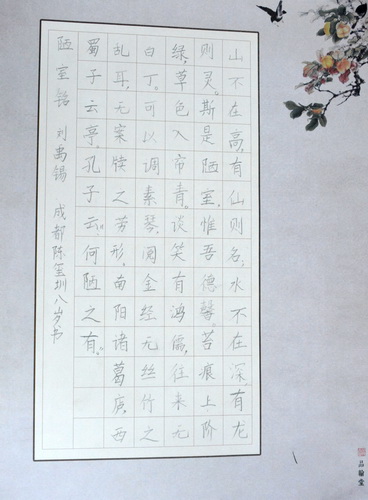 山不在高,有仙则名。水不在深,有龙
则灵。斯是陋室,惟吾德馨。苔痕上阶
绿,草色入帘青。谈笑有鸿儒,往来无
白丁。可以调素琴,阅金经。无丝竹之
乱耳,无案牍之劳形。南阳诸葛庐,西
蜀子云亭。孔子云:何陋之有。
陋室铭 刘禹锡 成都陈 圳八岁书
品翰堂